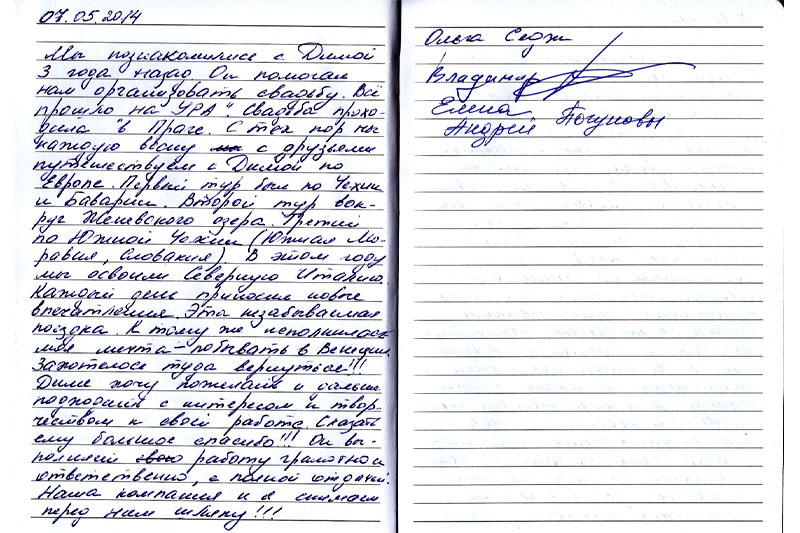 07.05.2014
Мы познакомились с Димой
3 года назад. Он помогал
нам организовать свадьбу. Всё
прошло на "УРА". Свадьба прохо-
дила в Праге. С тех пор мы
каждую весну с друзьями
путешествуем с Димой по
Европе. Первый тур был по Чехии
и Баварии. Второй тур вок-
руг Женевского озера. Третий
по Южной Чехии (Южная Мо-
равия, Словакия). В этом году
мы освоили Северную Италию.
Каждый день приносил новые
впечатления. Эта незабываемая
поездка. К тому же исполнилась
моя мечта - побывать в Венеции.
Захотелось туда вернуться!!!
Диме хочу пожелать и дальше
подходить с интересом и твор-
чеством к своей работе. Сказать
ему большое спасибо!!! Он вы-
полняет свою работу грамотно и
ответственно, с полной отдачей.
Наша компания и я снимаем
перед ним шляпу!!!
Ольга
Владимир
Елена
Андрей